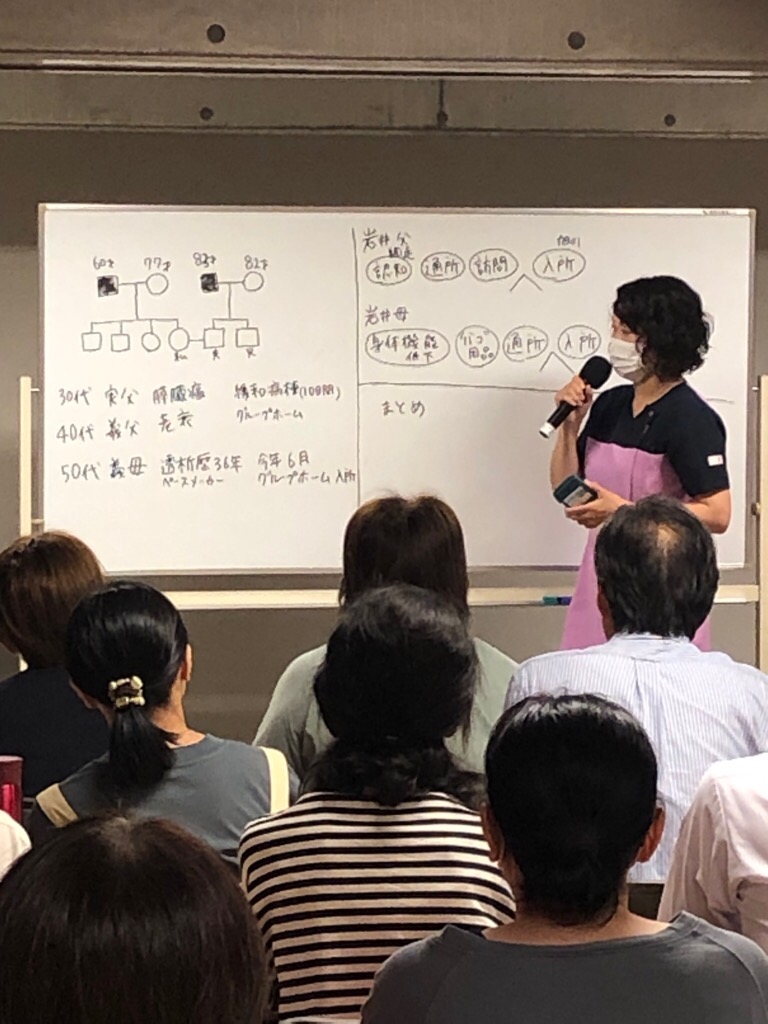 60才 77才 83才 82才
私 夫
30代 実父 膵臓癌 緩和病棟(10日間)
40代 義父 老衰 グループホーム
50代 義母 透析歴36年 今年6月
ペースメーカー グループホーム入所
岩井父
認知 通所 訪問 入所
岩井母
身体機能低下 通所 入所
まとめ